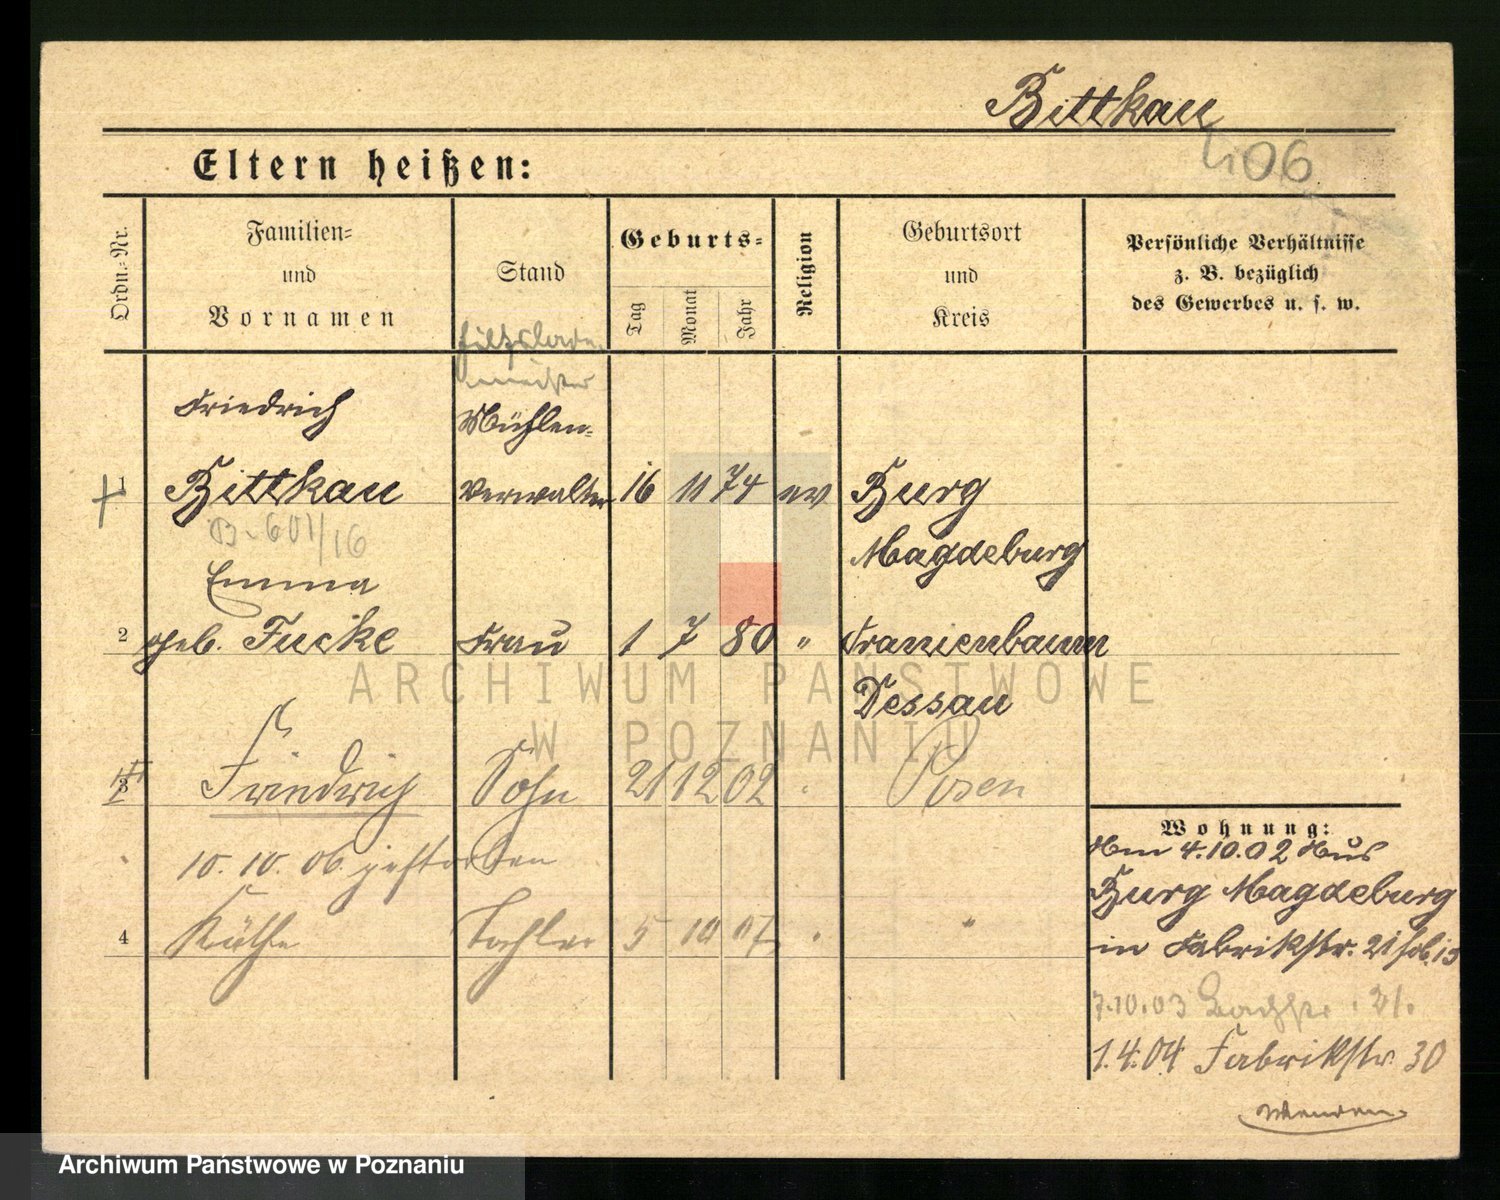 Bittkau
406
Eltern heißen:
Ordn.-Nr.
Familien-
und
Vornamen
Stand
Geburts-
Tag
Monat
Jahr
Religion
Geburtsort
und
Kreis
Persönliche Verhältnisse
z. B. bezüglich
des Gewerbes u. s. w.
Friedrich
Mühlen-
1 Bittkau verwalter 16 11 74 ev Burg
B. 601/16
Magdeburg
Emma
2 geb. Fucke Frau 1 7 80 " Oranienbaum
Dessau
3 Friedrich Sohn 21 12 02 " Posen
10. 10. 06. gestorben
4 Käthe Tochter 5 10 07 " "
Wohnung:
Am 4.10.02 Aus
Burg Magdeburg
in Fabrikstr. 21
7.10.03
1.4.04 Fabrikstr. 30
Wenden
ARCHIWUM PAŃSTWOWE
W POZNANIU
Archiwum Państwowe w Poznaniu